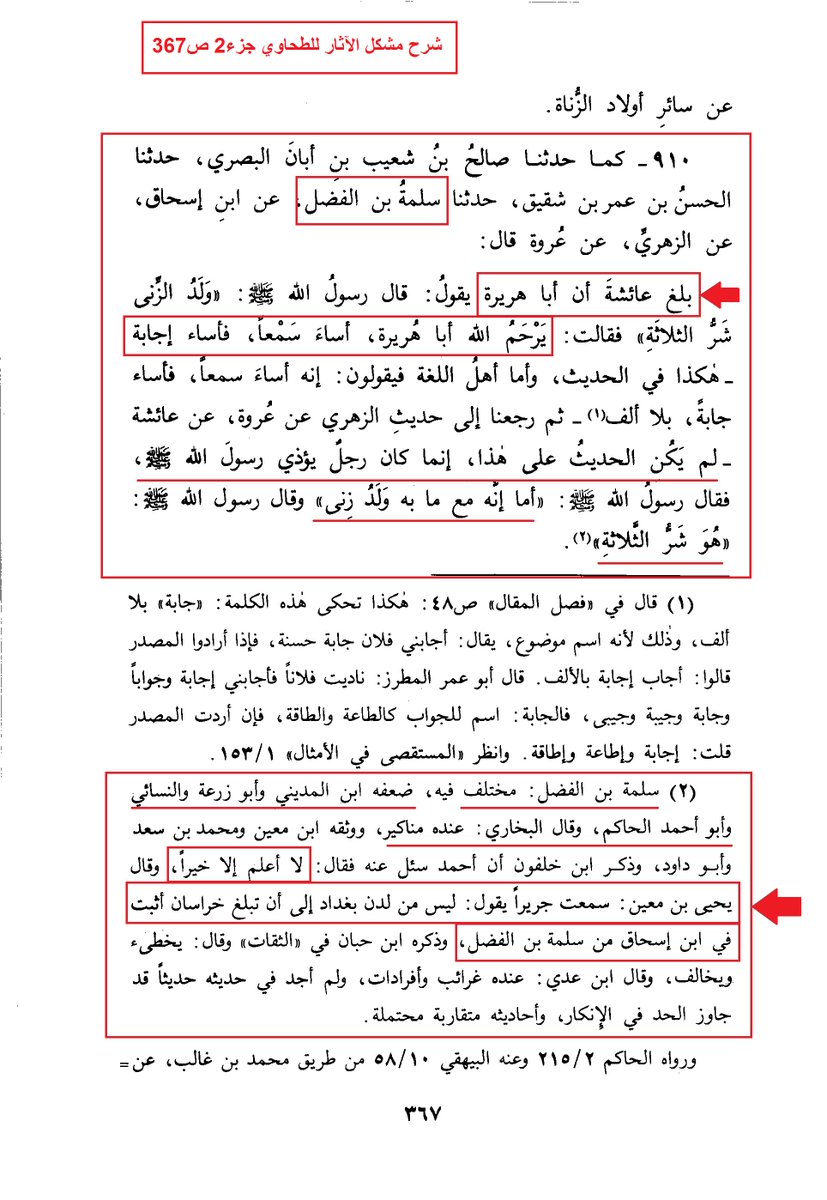 شرح مشكل الآثار للطحاوي جزء2 ص367
عن سائرِ أولاد الزُّناة.
٩١٠ ـ كمـا حدثنـا صالحُ بنُ شعيب بنِ أبانَ البصري، حدثنا
الحسنُ بن عمر بن شقيق، حدثنا سلمةُ بن الفضل، عن ابنِ إسحاق،
عن الزهريِّ، عن عُروة قال:
بلغ عائشةَ أن أبا هريرة يقولُ: قال رسولُ الله ﷺ: «وَلَدُ الزِّنى
شَرُّ الثلاثَةِ» فقالت: يَرْحَمُ الله أبا هُريرة، أساءَ سَمْعاً، فأساء إجابة
ـ هٰكذا في الحديث، وأما أهلُ اللغة فيقولون: إنه أساءَ سمعاً، فأساء
جابةً، بلا ألف(١) ـ ثم رجعنا إلى حديثِ الزهري عن عُروة، عن عائشة
ـ لم يَكُن الحديثُ على هٰذا، إنما كان رجلٌ يؤذي رسولَ الله ﷺ،
فقال رسولُ الله ﷺ: «أما إنَّه مع ما به وَلَدُ زِنى» وقال رسول الله ﷺ:
«هُوَ شَرُّ الثَّلاثةِ»(٢).
(١) قال في «فصل المقال» ص٤٨: هٰكذا تحكى هٰذه الكلمة: «جابة» بلا
ألف، وذٰلك لأنه اسم موضوع، يقال: أجابني فلان جابة حسنة، فإذا أرادوا المصدر
قالوا: أجاب إجابة بالألف. قال أبو عمر المطرز: ناديت فلاناً فأجابني إجابة وجَواباً
وجابة وجيبة وجيبى، فالجابة: اسم للجواب كالطاعة والطاقة، فإن أردت المصدر
قلت: إجابة وإطاعة وإطاقة. وانظر «المستقصى في الأمثال» ١٥٣/١.
(٢) سلمة بن الفضل: مختلف فيه، ضعفه ابن المديني وأبو زرعة والنسائي
وأبو أحمد الحاكم، وقال البخاري: عنده مناكير، ووثقه ابن معين ومحمد بن سعد
وأبـو داود، وذكـر ابن خلفون أن أحمد سئل عنه فقال: لا أعلم إلا خيراً، وقال
يحيى بن معين: سمعت جريراً يقول: ليس من لدن بغداد إلى أن تبلغ خراسان أثبت
في ابن إسحاق من سلمة بن الفضل، وذكره ابن حبان في «الثقات» وقال: يخطىء
ويخالف، وقال ابن عدي: عنده غرائب وأفرادات، ولم أجد في حديثه حديثاً قد
جاوز الحد في الإنكار، وأحاديثه متقاربة محتملة.
ورواه الحاكم ٢١٥/٢ وعنه البيهقي ٥٨/١٠ من طريق محمد بن غالب، عن =
٣٦٧